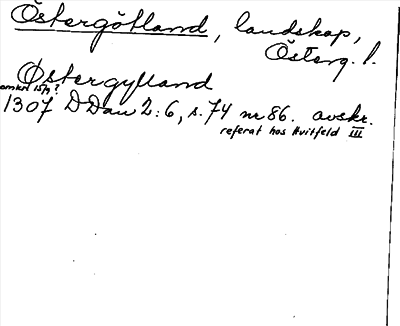 Östergötland, landskap,
Österg. l.
Østergylland
omkr 15/9?
1307 DDan 2:6, s. 74 nr 86. avskr.
referat hos Hvitfeld III